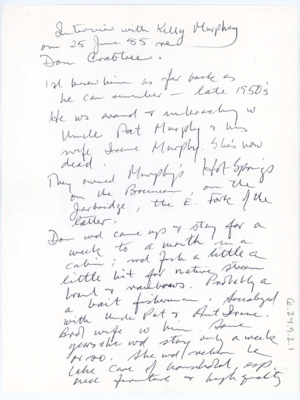 Interview with Kelly Murphey
on 25 June 85 re
Don Crabtree.
1st knew him as far back as
he can remember – late 1950's
He ws around & interacting w
Uncle Pat Murphy & his
wife Irene Murphy. She's now
dead.
They owned Murphy's Hot Springs
on the Bruneau, on the
Jarbridge, the E. Fork of the
latter.
Don wd come up & stay for a
week to a month in a
cabin; wd fish a little a
little bit for native stream
trout & rainbows. Probably a
a bait fisherman. Socialized
with Uncle Pat & Aunt Irene.
Brot wife w him. Some
years she wd stay only a week
or so. She wd
take care of household, esp
nice furniture & high quality